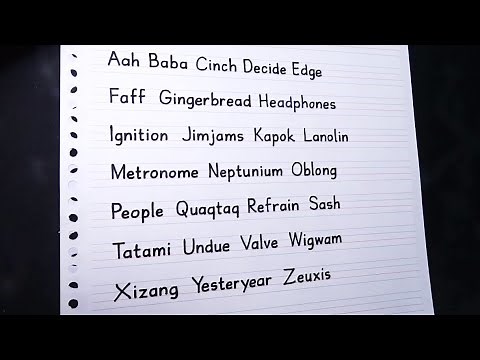 Aah Baba Cinch Decide Edge
Faff Gingerbread Headphones
Ignition Jimjams Kapok Lanolin
Metronome Neptunium Oblong
People Quaqtaq Refrain Sash
Tatami Undue Valve Wigwam
Xizang Yesteryear Zeuxis